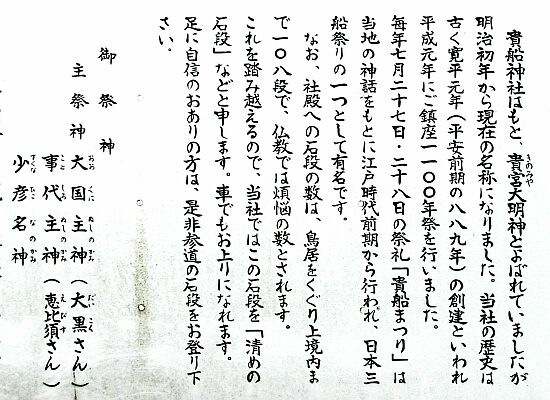 貴船神社はもと、貴宮大明神とよばれていましたが
きのみや
明治初年から現在の名称になりました。当社の歴史は
古く寛平元年(平安前期の八八九年)の創建といわれ
平成元年にご鎮座一一〇〇年祭を行いました。
毎年七月二十七日・二十八日の祭礼「貴船まつり」は
当地の神話をもとに江戸時代前期から行われ、日本三
船祭りの一つとして有名です。
なお、社殿への石段の数は、鳥居をくぐり上境内ま
で一〇八段で、仏教では煩悩の数とされます。
これを踏み越えるので、当社ではこの石段を「清めの
石段」などと申します。車でもお上りになれます。
足に自信のおありの方は、是非参道の石段をお登り下
さい。
御祭神
主祭神 大国主神(大黒さん)
おおくにぬしのかみ だいこく
事代主神(恵比須さん)
ことしろぬしのかみ えびす
少彦名神
すくなひこなのかみ